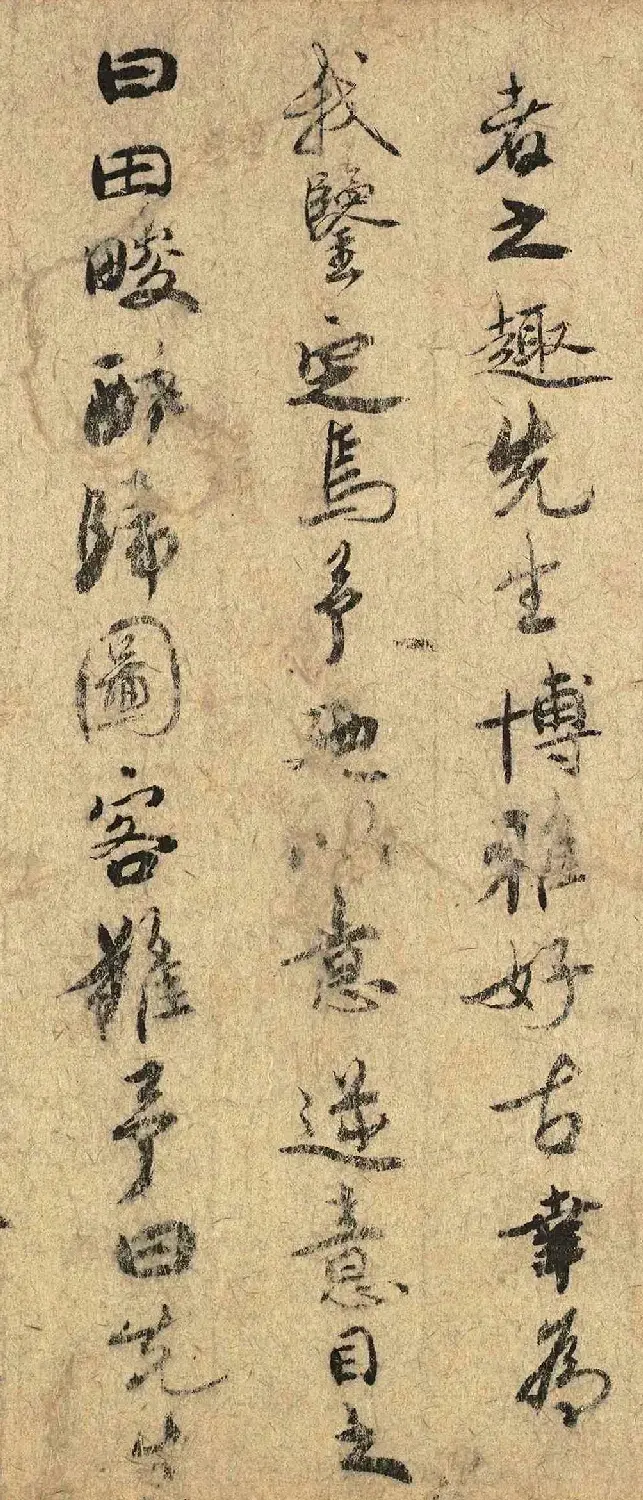 者之趣先生博雅好古幸為
我鑒定焉予以意逆意目之
曰田畯醉歸圖客難予曰先生